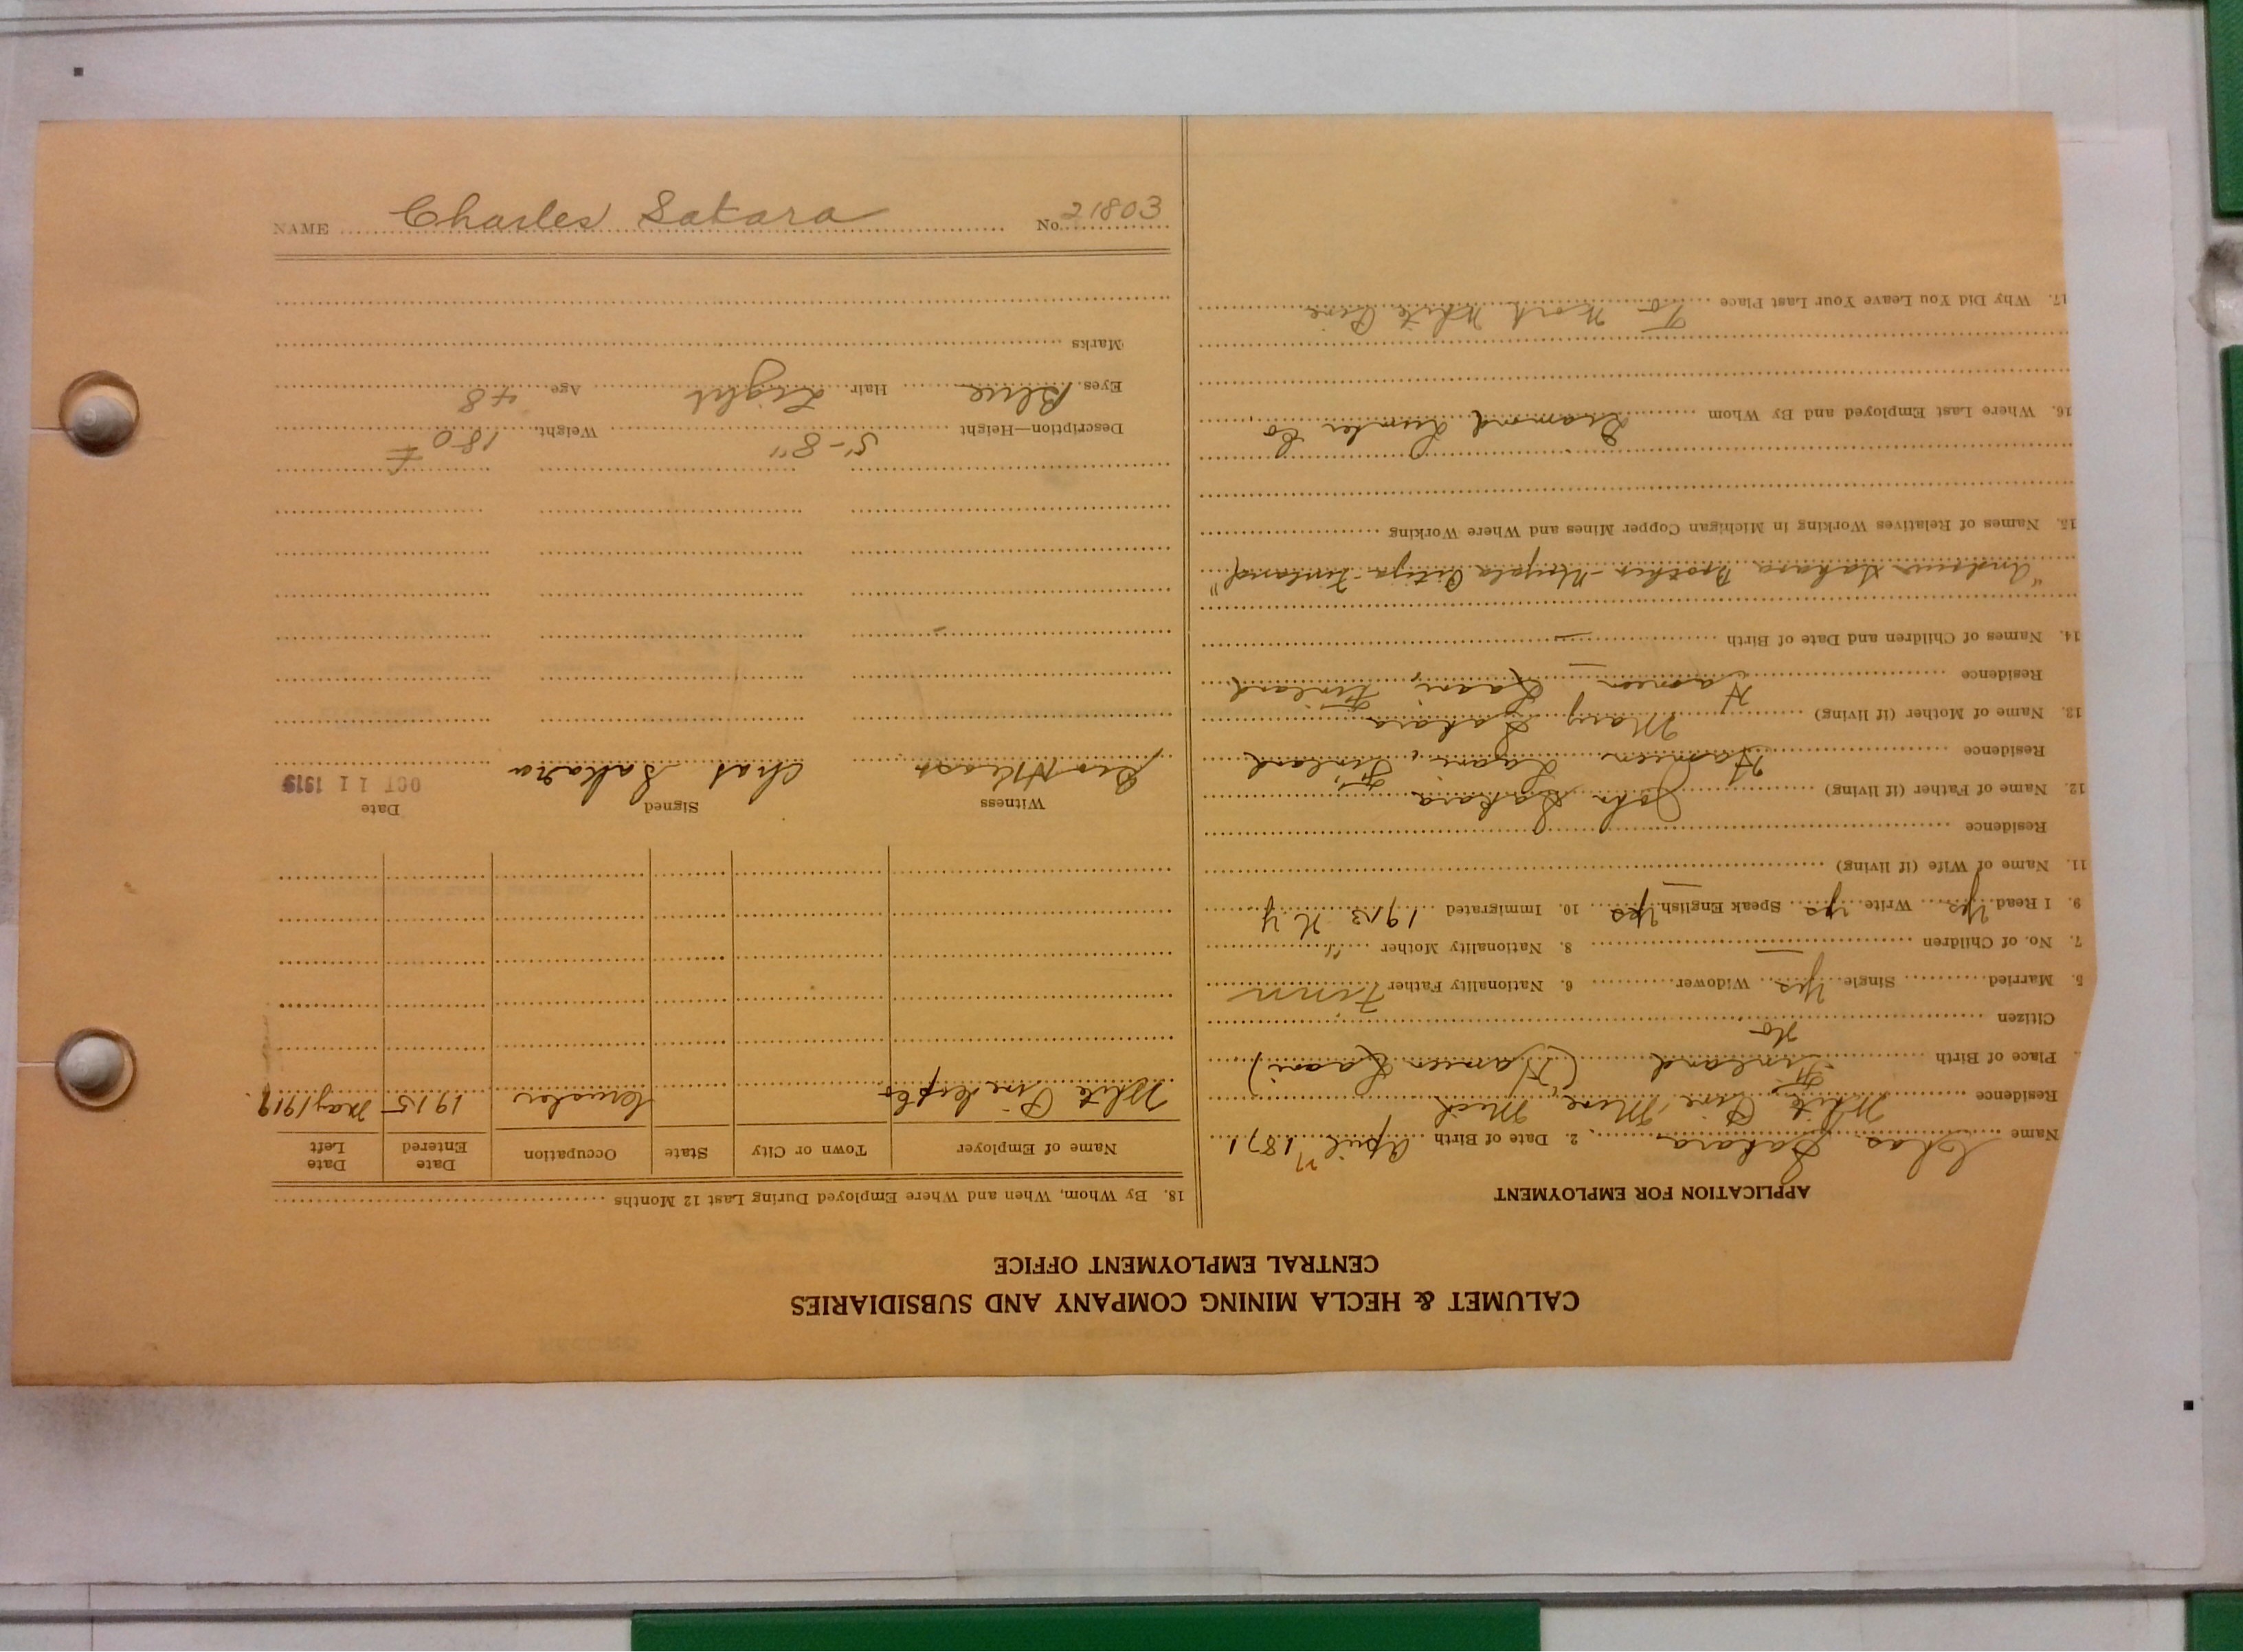 CALUMET & HECLA MINING COMPANY AND SUBSIDIARIES
CENTRAL EMPLOYMENT OFFICE
APPLICATION FOR EMPLOYMENT
Name Chas. Sakara 2. Date of Birth April 1871
Residence White Pine Mine, Mich
Place of Birth Finland (Hameen Laani)
Citizen No
5. Married Single Yes Widower 6. Nationality Father Finn
7. No. of Children — 8. Nationality Mother "
9. I Read Yes Write Yes Speak English Yes 10. Immigrated 1913 N.Y
11. Name of Wife (if living) —
Residence
12. Name of Father (if living) John Sakara
Residence Hameen Laani, Finland
13. Name of Mother (if living) Mary Sakara
Residence Hameen Laani, Finland
14. Names of Children and Date of Birth —
"Andrew Sakara Brother - Finland"
15. Names of Relatives Working in Michigan Copper Mines and Where Working
16. Where Last Employed and By Whom Diamond Lumber Co
17. Why Did You Leave Your Last Place To Work White Pine
18. By Whom, When and Where Employed During Last 12 Months
Name of Employer Town or City State Occupation Date Entered Date Left
White Pine 1915 May 1919.
Witness Signed Date
Chas Sakara OCT 11 1919
Description—Height 5'-8" Weight 180 #
Eyes Blue Hair Light Age 48
Marks
NAME Charles Sakara No. 21803